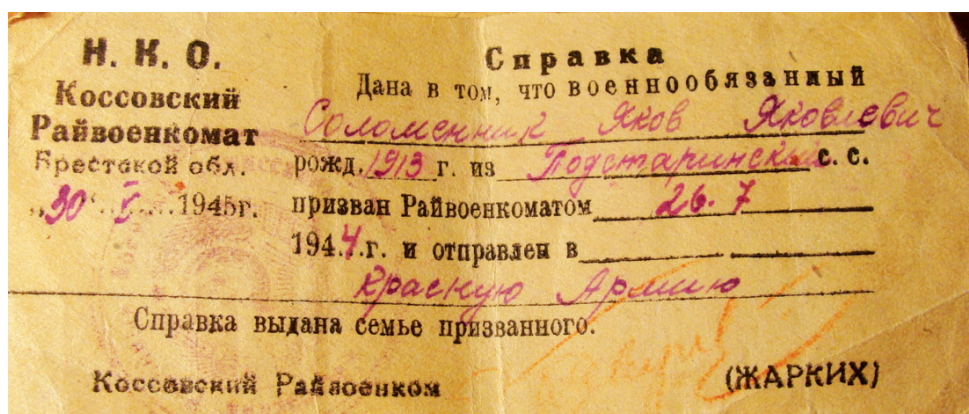 Н. К. О.
Коссовский
Райвоенкомат
Брестской обл.
„30“ V 1945г.
Справка
Дана в том, что военнообязанный
Соломенник Яков Яковлевич
рожд. 1913 г. из Подстаринский с. с.
призван Райвоенкоматом 26.7
1944 г. и отправлен в
Красную Армию
Справка выдана семье призванного.
Коссовский Райвоенком (ЖАРКИХ)